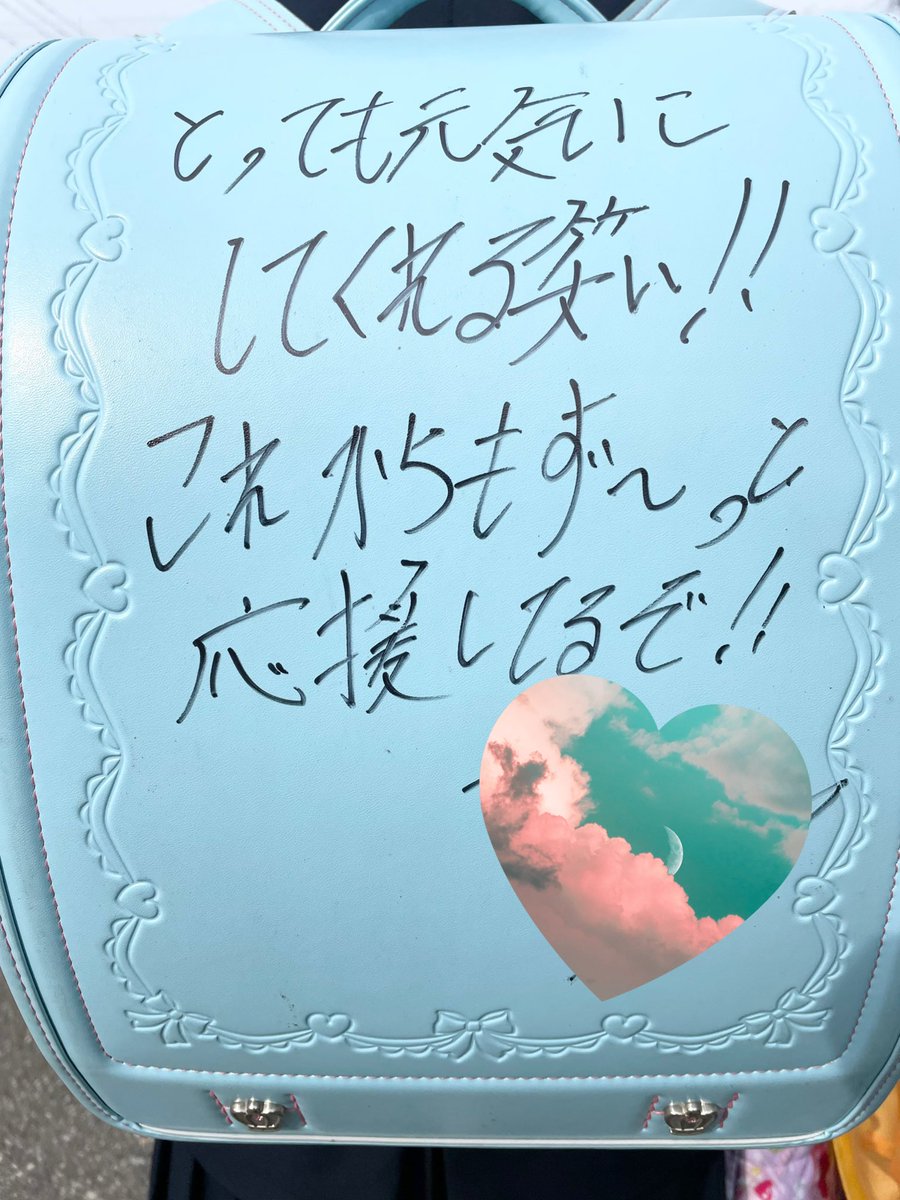 とっても元気に
してくれる笑い!!
これからもず〜っと
応援してるぞ!!